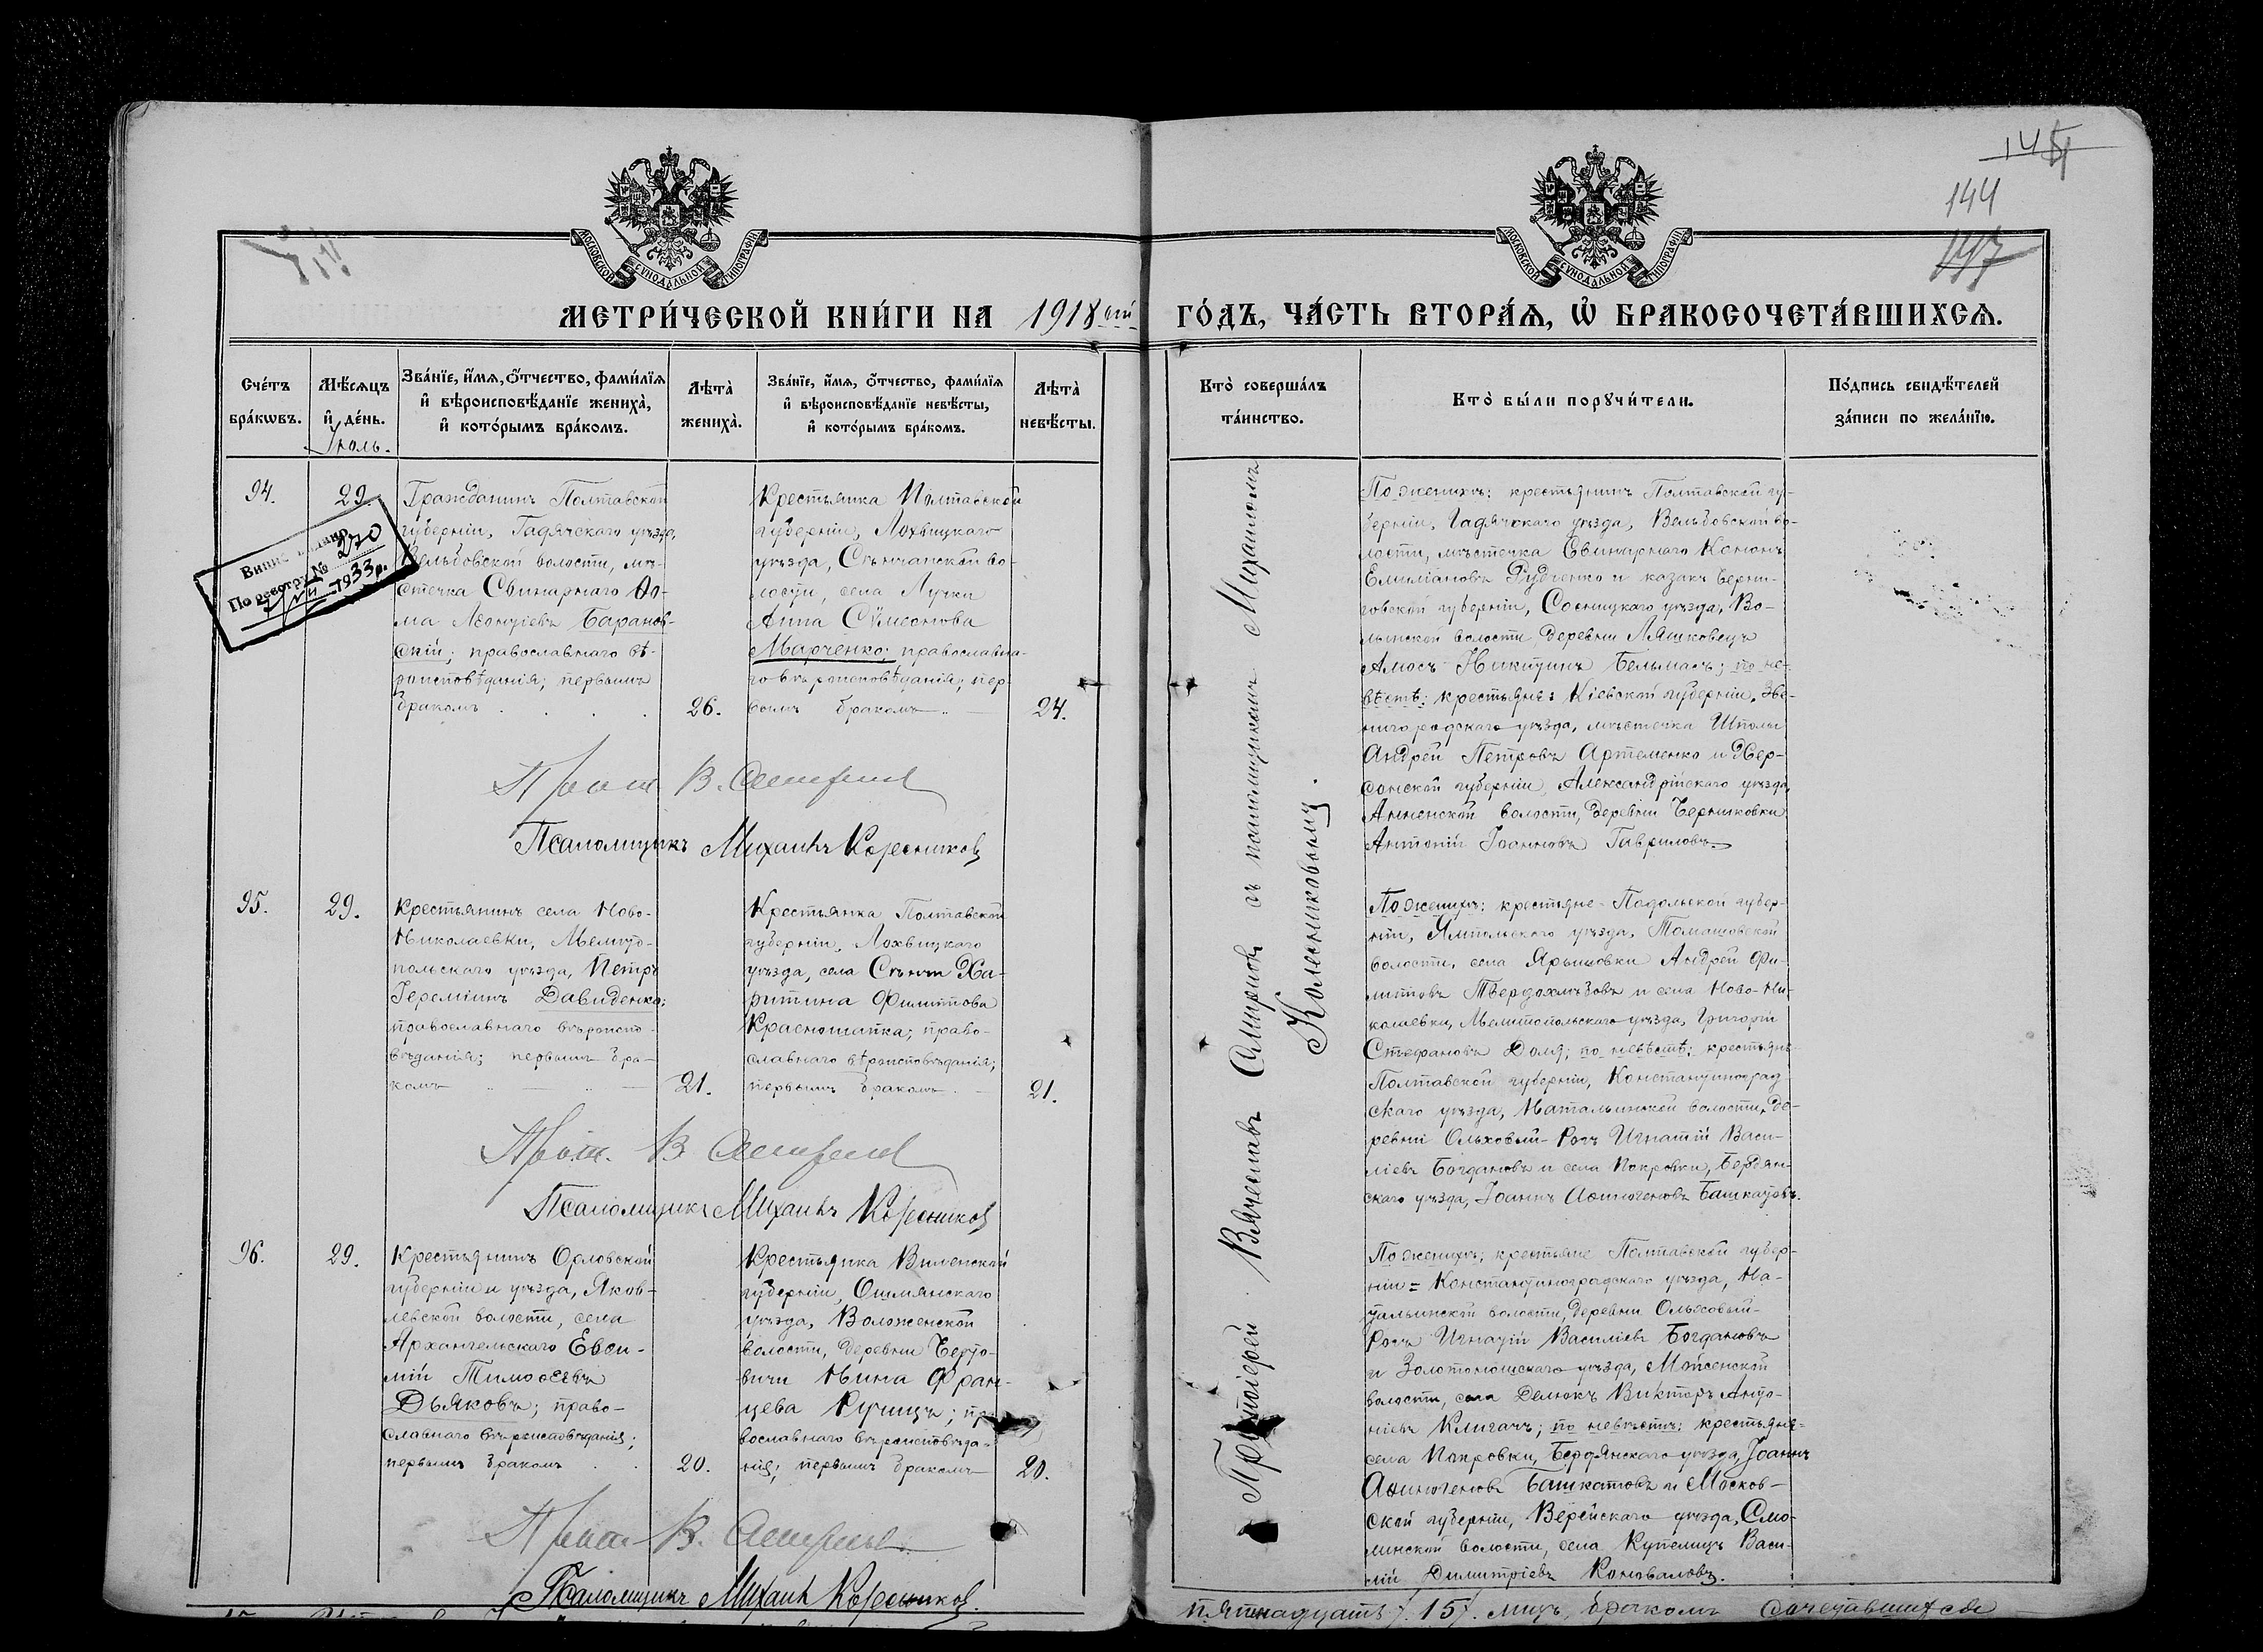 145
144
147
МОСКОВСКОЙ СѴНОДАЛЬНОЙ ТИПОГРАФІИ
МЕТРИ́ЧЕСКОЙ КНИ́ГИ НА 1918 ый
Сче́тъ бра́кωвъ.
Мѣ́сяцъ и҆ де́нь.
Іюль.
Зва́нїе, и҆́мя, ѻ҆́тчество, фами́лїя и҆ вѣроисповѣ́данїе жениха̀, и҆ кото́рымъ бра́комъ.
Лѣта̀ жениха̀.
Зва́нїе, и҆́мя, ѻ҆́тчество, фами́лїя и҆ вѣроисповѣ́данїе невѣ́сты, и҆ кото́рымъ бра́комъ.
Лѣта̀ невѣ́сты.
94.
29.
Гражданинъ Полтавской
губерніи, Гадячскаго уѣзда,
Вельбовской волости, мѣ-
стечка Свинарнаго Ѳо-
ма Леонтіевъ Баранов-
скій; православнаго вѣ-
роисповѣданія; первымъ
бракомъ
26.
Крестьянка Полтавской
губерніи, Лохвицкаго
уѣзда, Сѣнчанской во-
лости, села Лучки
Анна Сѵмеонова
Марченко; православна-
го вѣроисповѣданія; пер-
вымъ бракомъ
24.
По реестру № 270
1933 р.
Прот. В.
Псаломщикъ Михаилъ Колесниковъ
95.
29.
Крестьянинъ села Ново-
Николаевки, Мелито-
польскаго уѣзда, Петръ
Іереміинъ Давиденко;
православнаго вѣроиспо-
вѣданія; первымъ бра-
комъ
21.
Крестьянка Полтавской
губерніи, Лохвицкаго
уѣзда, села Сѣнчи Ха-
ритина Филиппова
Красношапка; право-
славнаго вѣроисповѣданія;
первымъ бракомъ
21.
Прот. В.
Псаломщикъ Михаилъ Колесниковъ
96.
29.
Крестьянинъ Орловской
губерніи и уѣзда, Яков-
левской волости, села
Архангельскаго Евѳи-
мій Тимоѳеевъ
Дьяковъ; право-
славнаго вѣроисповѣданія;
первымъ бракомъ
20.
Крестьянка Виленской
губерніи, Ошмянскаго
уѣзда, Воложенской
волости, деревни Берто-
вичи Нина Фран-
цева Ручицъ; пра-
вославнаго вѣроисповѣда-
нія; первымъ бракомъ
20.
Прот. В.
Псаломщикъ Михаилъ Колесниковъ.
МОСКОВСКОЙ СѴНОДАЛЬНОЙ ТИПОГРАФІИ
ГО́ДЪ, ЧА́СТЬ ВТОРА́Я, Ѽ БРАКОСОЧЕТА́ВШИХСЯ.
Кто̀ соверша́лъ та́инство.
Кто̀ бы́ли порꙋчи́тели.
По́дпись свидѣ́телей за́писи по жела́нїю.
Протоіерей Вячеславъ Смирновъ съ псаломщикомъ Михаиломъ
Колесниковымъ.
По женихѣ: крестьянинъ Полтавской гу-
берніи, Гадячскаго уѣзда, Вельбовской во-
лости, мѣстечка Свинарнаго Кононъ
Емиліановъ Рудченко и казакъ Черни-
говской губерніи, Сосницкаго уѣзда, Во-
лынской волости деревни Ляшковецъ
Амосъ Никитинъ Бельмасъ; по не-
вѣстѣ: крестьяне: Кіевской губерніи, Зве-
нигородскаго уѣзда, мѣстечка Шполы
Андрей Петровъ Артеменко и Хер-
сонской губерніи, Александрійскаго уѣзда,
Анненской волости, деревни Берниковки
Антоній Іоанновъ Гавриловъ.
По женихѣ: крестьяне - Подольской губер-
ніи, Ямпольскаго уѣзда, Томашовской
волости, села Ярышовки Андрей Фи-
липповъ Твердохлѣбовъ и села Ново-Ни-
колаевки, Мелитопольскаго уѣзда, Григорій
Стефановъ Доля; по невѣстѣ: крестьяне
Полтавской губерніи, Константиноград-
скаго уѣзда, Натальинской волости, де-
ревни Ольховый-Рогъ Игнатій Васи-
ліевъ Богдановъ и села Покровки, Бердян-
скаго уѣзда, Іоаннъ Аѳиногеновъ Башкатовъ.
По женихѣ: крестьяне Полтавской губер-
ніи = Константиноградскаго уѣзда, На-
тальинской волости, деревни Ольховый-
Рогъ Игнатій Василіевъ Богдановъ
и Золотоношскаго уѣзда, Мойсенской
волости, села Демокъ Викторъ Анто-
ніевъ Клигачъ; по невѣстѣ: крестьяне-
села Покровки, Бердянскаго уѣзда, Іоаннъ
Аѳиногеновъ Башкатовъ и Москов-
ской губерніи, Верейскаго уѣзда, Смо-
линской волости, села Купелицъ Васи-
лій Димитріевъ Коноваловъ.
пятнадцать /. 15/. лицъ, бракомъ сочетавшихся